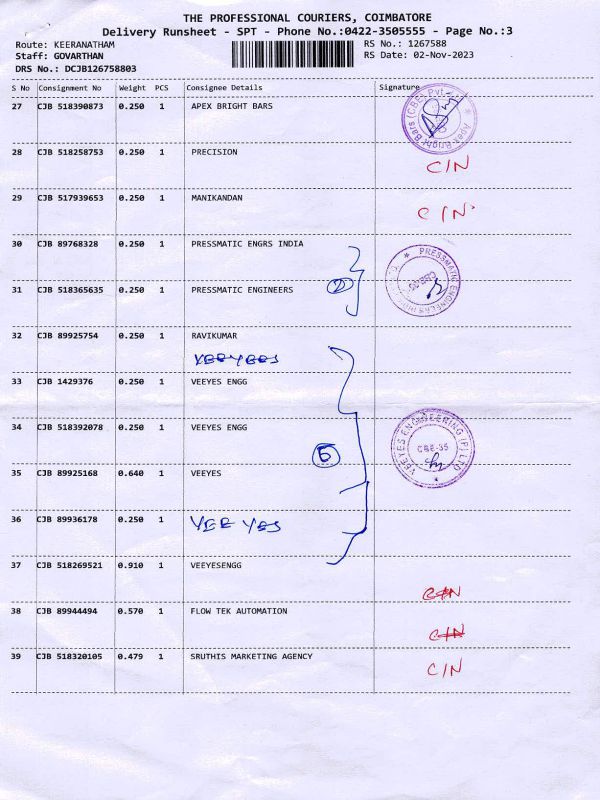 THE PROFESSIONAL COURIERS, COIMBATORE
Delivery Runsheet - SPT - Phone No.:0422-3505555 - Page No.:3
Route: KEERANATHAM RS No.: 1267588
Staff: GOVARTHAN RS Date: 02-Nov-2023
DRS No.: DCJB126758803
S No Consignment No Weight PCS Consignee Details Signature
27 CJB 518390873 0.250 1 APEX BRIGHT BARS
Apex Bright Bars (CBE) Pvt.
28 CJB 518258753 0.250 1 PRECISION
C/N
29 CJB 517939653 0.250 1 MANIKANDAN
C/N
30 CJB 89768328 0.250 1 PRESSMATIC ENGRS INDIA
PRESSMATIC ENGINEERS
CBE-35
31 CJB 518365635 0.250 1 PRESSMATIC ENGINEERS
2
32 CJB 89925754 0.250 1 RAVIKUMAR
VEEYEES
33 CJB 1429376 0.250 1 VEEYES ENGG
34 CJB 518392078 0.250 1 VEEYES ENGG
VEEYES ENGINEERING (P) LTD
CBE-35
5
35 CJB 89925168 0.640 1 VEEYES
36 CJB 89936178 0.250 1 VEE YES
37 CJB 518269521 0.910 1 VEEYESENGG
C/N
38 CJB 89944494 0.570 1 FLOW TEK AUTOMATION
C/N
39 CJB 518320105 0.479 1 SRUTHIS MARKETING AGENCY
C/N